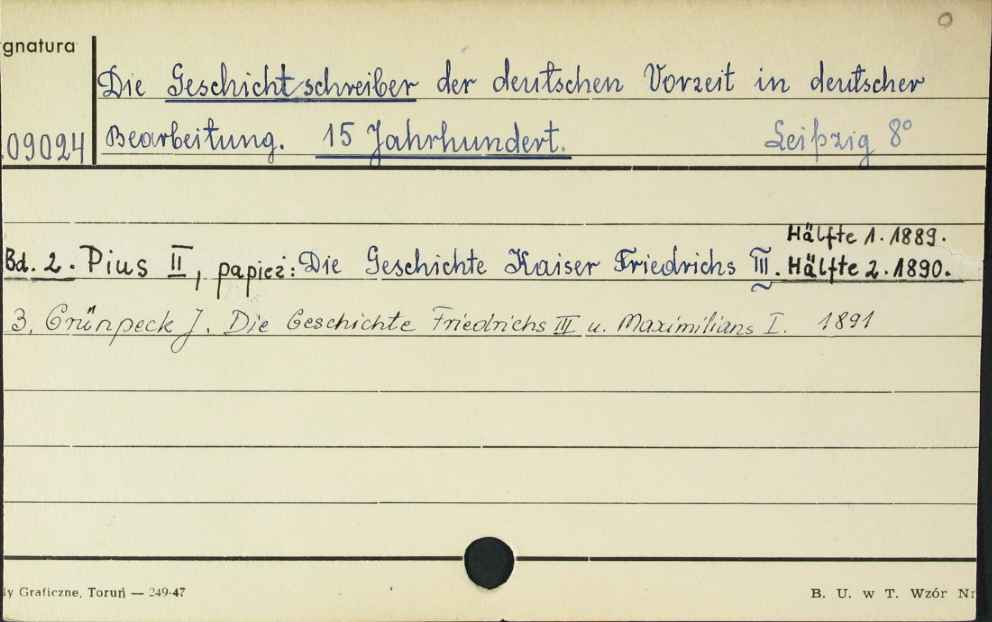 gnatura
Die Geschichtschreiber der deutschen Vorzeit in deutscher
09024 Bearbeitung. 15 Jahrhundert. Leipzig 8°
Hälfte 1. 1889.
Bd. 2. Pius II, papież: Die Geschichte Kaiser Friedrichs III. Hälfte 2. 1890.
3. Grünpeck J. Die Geschichte Friedrichs III u. Maximilians I. 1891
Graficzne, Toruń — 249-47 B. U. w T. Wzór Nr